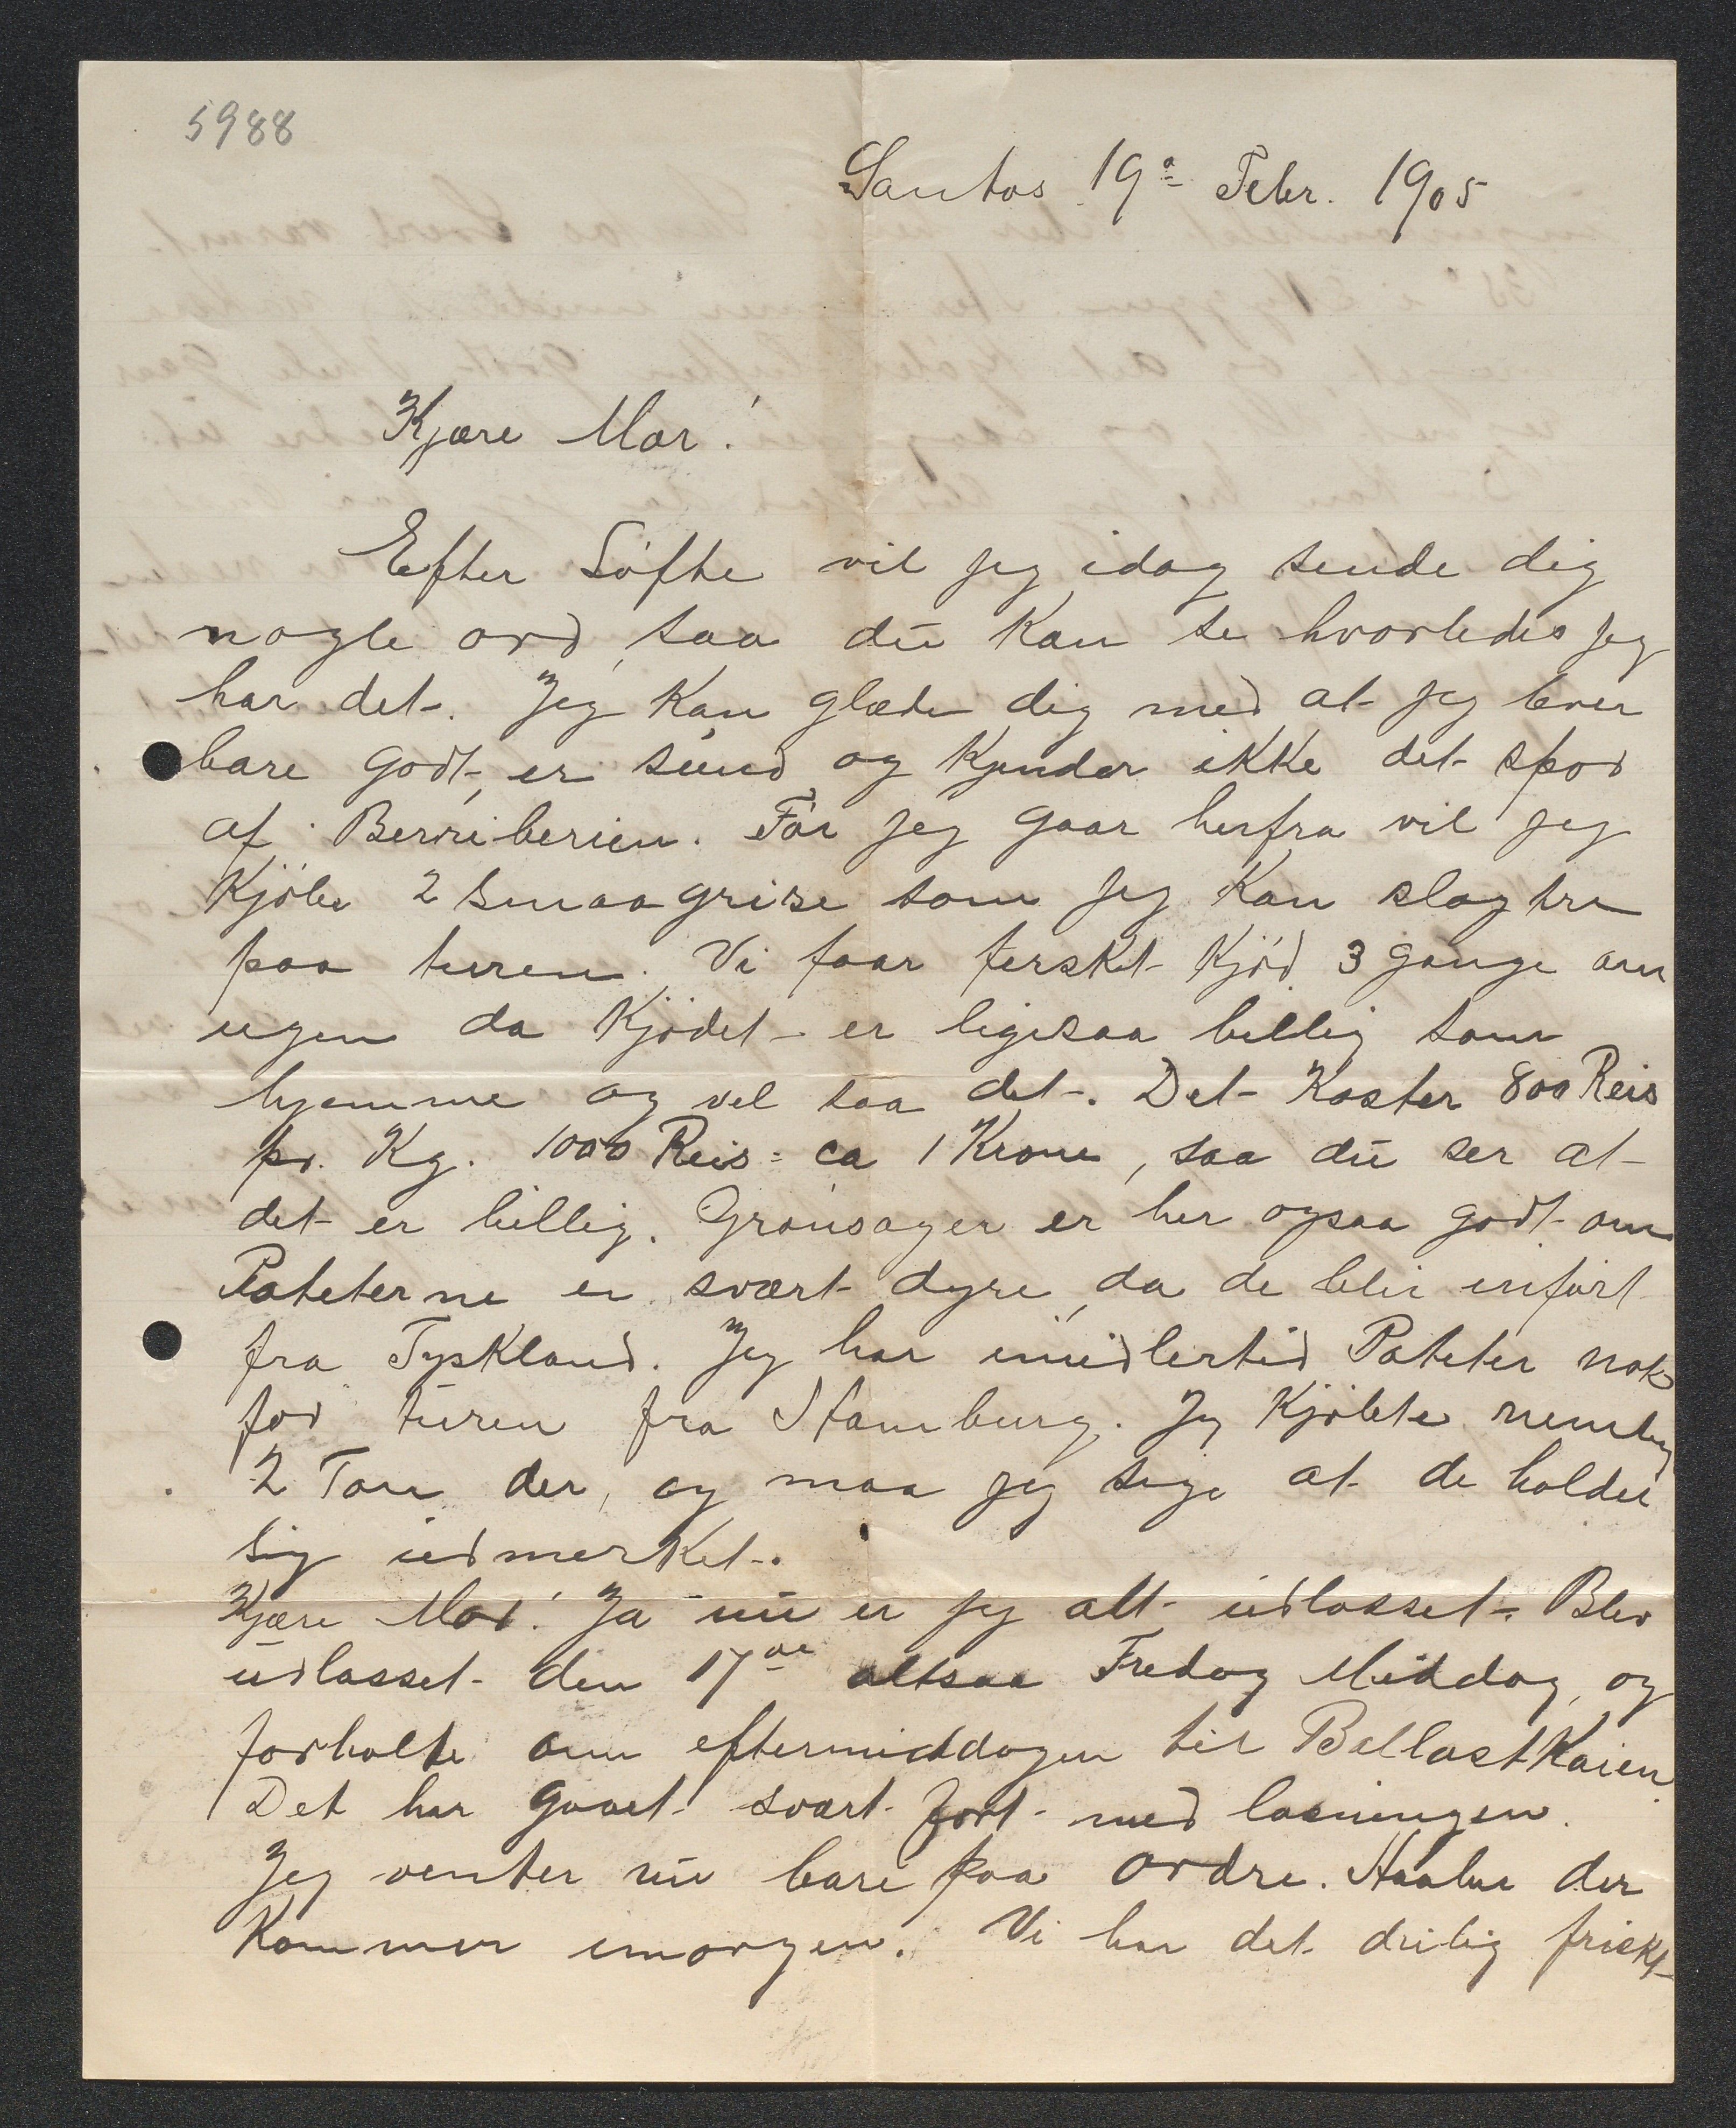 5988
Santos 19a Febr. 1905
Kjære Mor!
Efter Löfte vil jeg idag sende dig
nogle ord, saa du kan se hvorledes jeg
har det. Jeg kan glæde dig med at jeg lever
bare godt, er sund og kjender ikke det spor
af Berriberien. Før jeg gaar herfra vil jeg
kjøbe 2 smaa grise som jeg kan slagtre
paa turen. Vi faar ferskt Kjød 3 gange om
ugen da Kjødet er ligesaa billig som
hjemme og vel saa det. Det koster 800 Reis
pr. Kg. 1000 Reis = ca 1 Krone, saa du ser at
det er billig. Grønsager er her ogsaa godt om
Poteterne er svært dyre, da de blir inført
fra Tyskland. Jeg har imidlertid Poteter nok
for turen fra Hamburg. Jeg Kjøbte nemlig
2 Ton der, og maa jeg sige at de holder
sig udmerket.
Kjære Mor! Ja nu er jeg alt udlosset. Blev
udlosset den 17de altsaa Fredag Middag, og
forholte om eftermiddagen til Ballastkaien.
Det har gaaet svært fort med losningen.
Jeg venter nu bare paa ordre. Haaber der
kommer imorgen. Vi har det deilig friskt